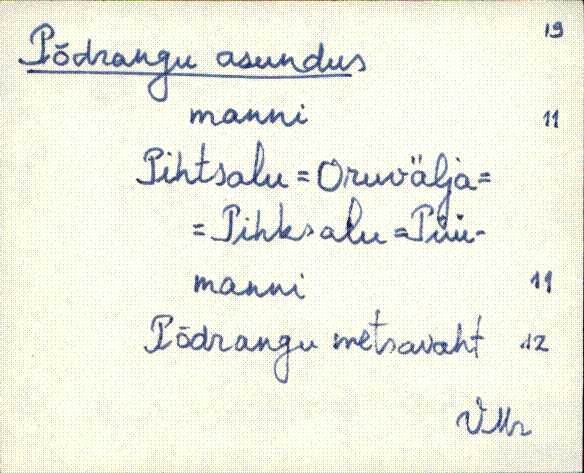 19
Põdrangu asundus
manni 11
Pihtsalu = Oruvälja =
= Pihksalu = Püü-
manni 11
Põdrangu metsavaht 12
VMr